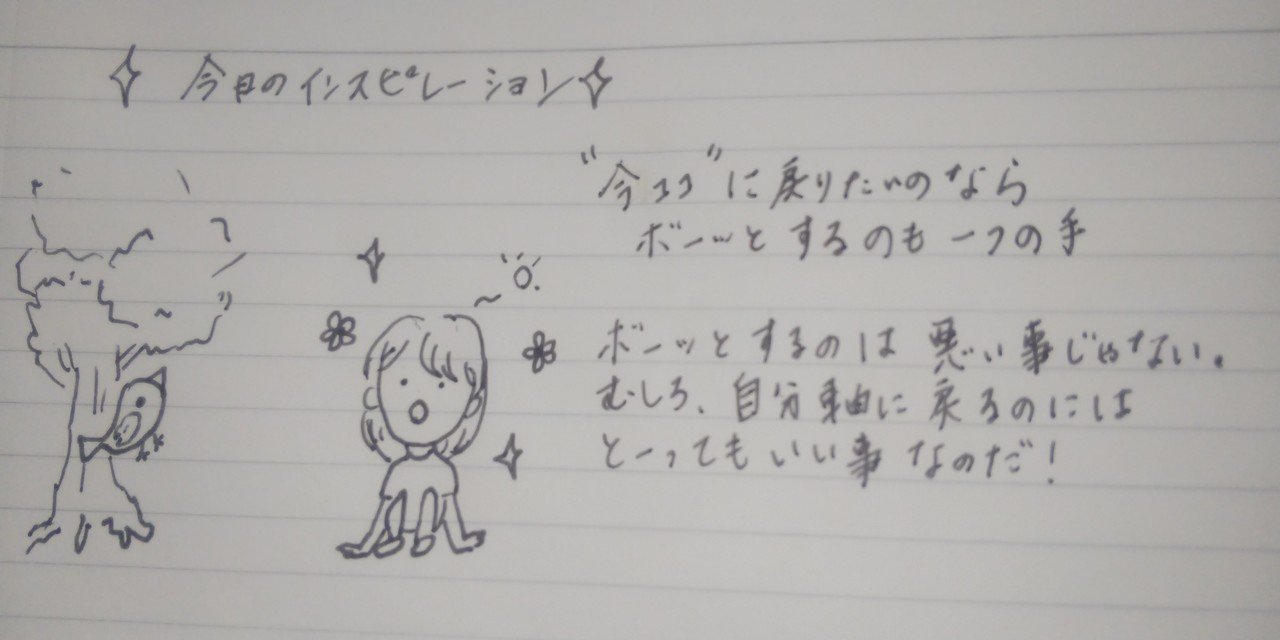 今日のインスピレーション
"今ココ"に戻りたいのなら
ボーッとするのも一つの手
ボーッとするのは悪い事じゃない。
むしろ、自分軸に戻るのには
とーってもいい事なのだ!